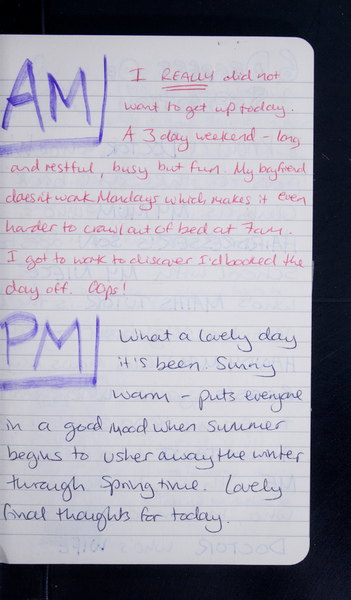 AM
I REALLY did not
want to get up today.
A 3 day weekend - long
and restful, busy but fun. My boyfriend
doesn't work Mondays which makes it even
harder to crawl out of bed at 7am.
I got to work to discover I'd booked the
day off. Oops!
PM
What a lovely day
it's been. Sunny
warm - puts everyone
in a good mood when summer
begins to usher away the winter
through Springtime. Lovely
final thoughts for today.